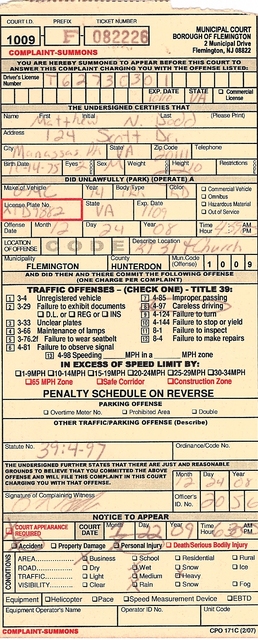 COURT I.D. PREFIX TICKET NUMBER
1009 F 082226
COMPLAINT-SUMMONS
MUNICIPAL COURT
BOROUGH OF FLEMINGTON
2 Municipal Drive
Flemington, NJ 08822
YOU ARE HEREBY SUMMONED TO APPEAR BEFORE THIS COURT TO
ANSWER THIS COMPLAINT CHARGING YOU WITH THE OFFENSE LISTED:
Driver's License
Number
EXP. DATE STATE Commercial
License
THE UNDERSIGNED CERTIFIES THAT
Name: First Initial Last (Please Print)
Matthew N.
Address
124 Scott Dr.
City State Zip Code Telephone
Manassas VA
Birth Date Eyes Sex Weight Height Restrictions
DID UNLAWFULLY (PARK) (OPERATE) A
Make of Vehicle Year Body Type Color Commercial Vehicle
Omnibus
License Plate No. State Exp. Date Hazardous Material
Out of Service
VA
Offense
Date Month Day Year Time
12 24 08
LOCATION
OF OFFENSE CODE Describe Location
31 / Church
Municipality County Mun. Code
(Offense) 1 0 0 9
FLEMINGTON HUNTERDON
AND DID THEN AND THERE COMMIT THE FOLLOWING OFFENSE
(ONE CHARGE PER COMPLAINT)
TRAFFIC OFFENSES – (CHECK ONE) - TITLE 39:
1 3-4 Unregistered vehicle 7 4-85 Improper passing
2 3-29 Failure to exhibit documents 8 4-97 Careless driving
D.L. or REG or INS 9 4-124 Failure to turn
3 3-33 Unclear plates 10 4-144 Failure to stop or yield
4 3-66 Maintenance of lamps 11 8-1 Failure to inspect
5 3-76.2f Failure to wear seatbelt 12 8-4 Failure to make repairs
6 4-81 Failure to observe signal
13 4-98 Speeding MPH in a MPH zone
IN EXCESS OF SPEED LIMIT BY:
1-9MPH 10-14MPH 15-19MPH 20-24MPH 25-29MPH 30-34MPH
65 MPH Zone Safe Corridor Construction Zone
PENALTY SCHEDULE ON REVERSE
PARKING OFFENSE
Overtime Meter No. Prohibited Area Double
OTHER TRAFFIC/PARKING OFFENSE (Describe)
Statute No. Ordinance/Code No.
39:4-97
THE UNDERSIGNED FURTHER STATES THAT THERE ARE JUST AND REASONABLE
GROUNDS TO BELIEVE THAT YOU COMMITTED THE ABOVE
OFFENSE AND WILL FILE THIS COMPLAINT IN THIS COURT
CHARGING YOU WITH THAT OFFENSE.
Month Day Year
12 24 08
Signature of Complaining Witness Officer's
I.D. No.
NOTICE TO APPEAR
COURT APPEARANCE
REQUIRED COURT
DATE Month Day Year Time
Hour
1 22 09
Accident Property Damage Personal Injury Death/Serious Bodily Injury
CONDITIONS
AREA Business School Residential Rural
ROAD Dry Wet Snow Ice
TRAFFIC Light Medium Heavy
VISIBILITY Clear Rain Snow Fog
Equipment Helicopter Pace Speed Measurement Device EBTD
Equipment Operator's Name Operator ID No. Unit Code
COMPLAINT-SUMMONS CPO 171C (2/07)